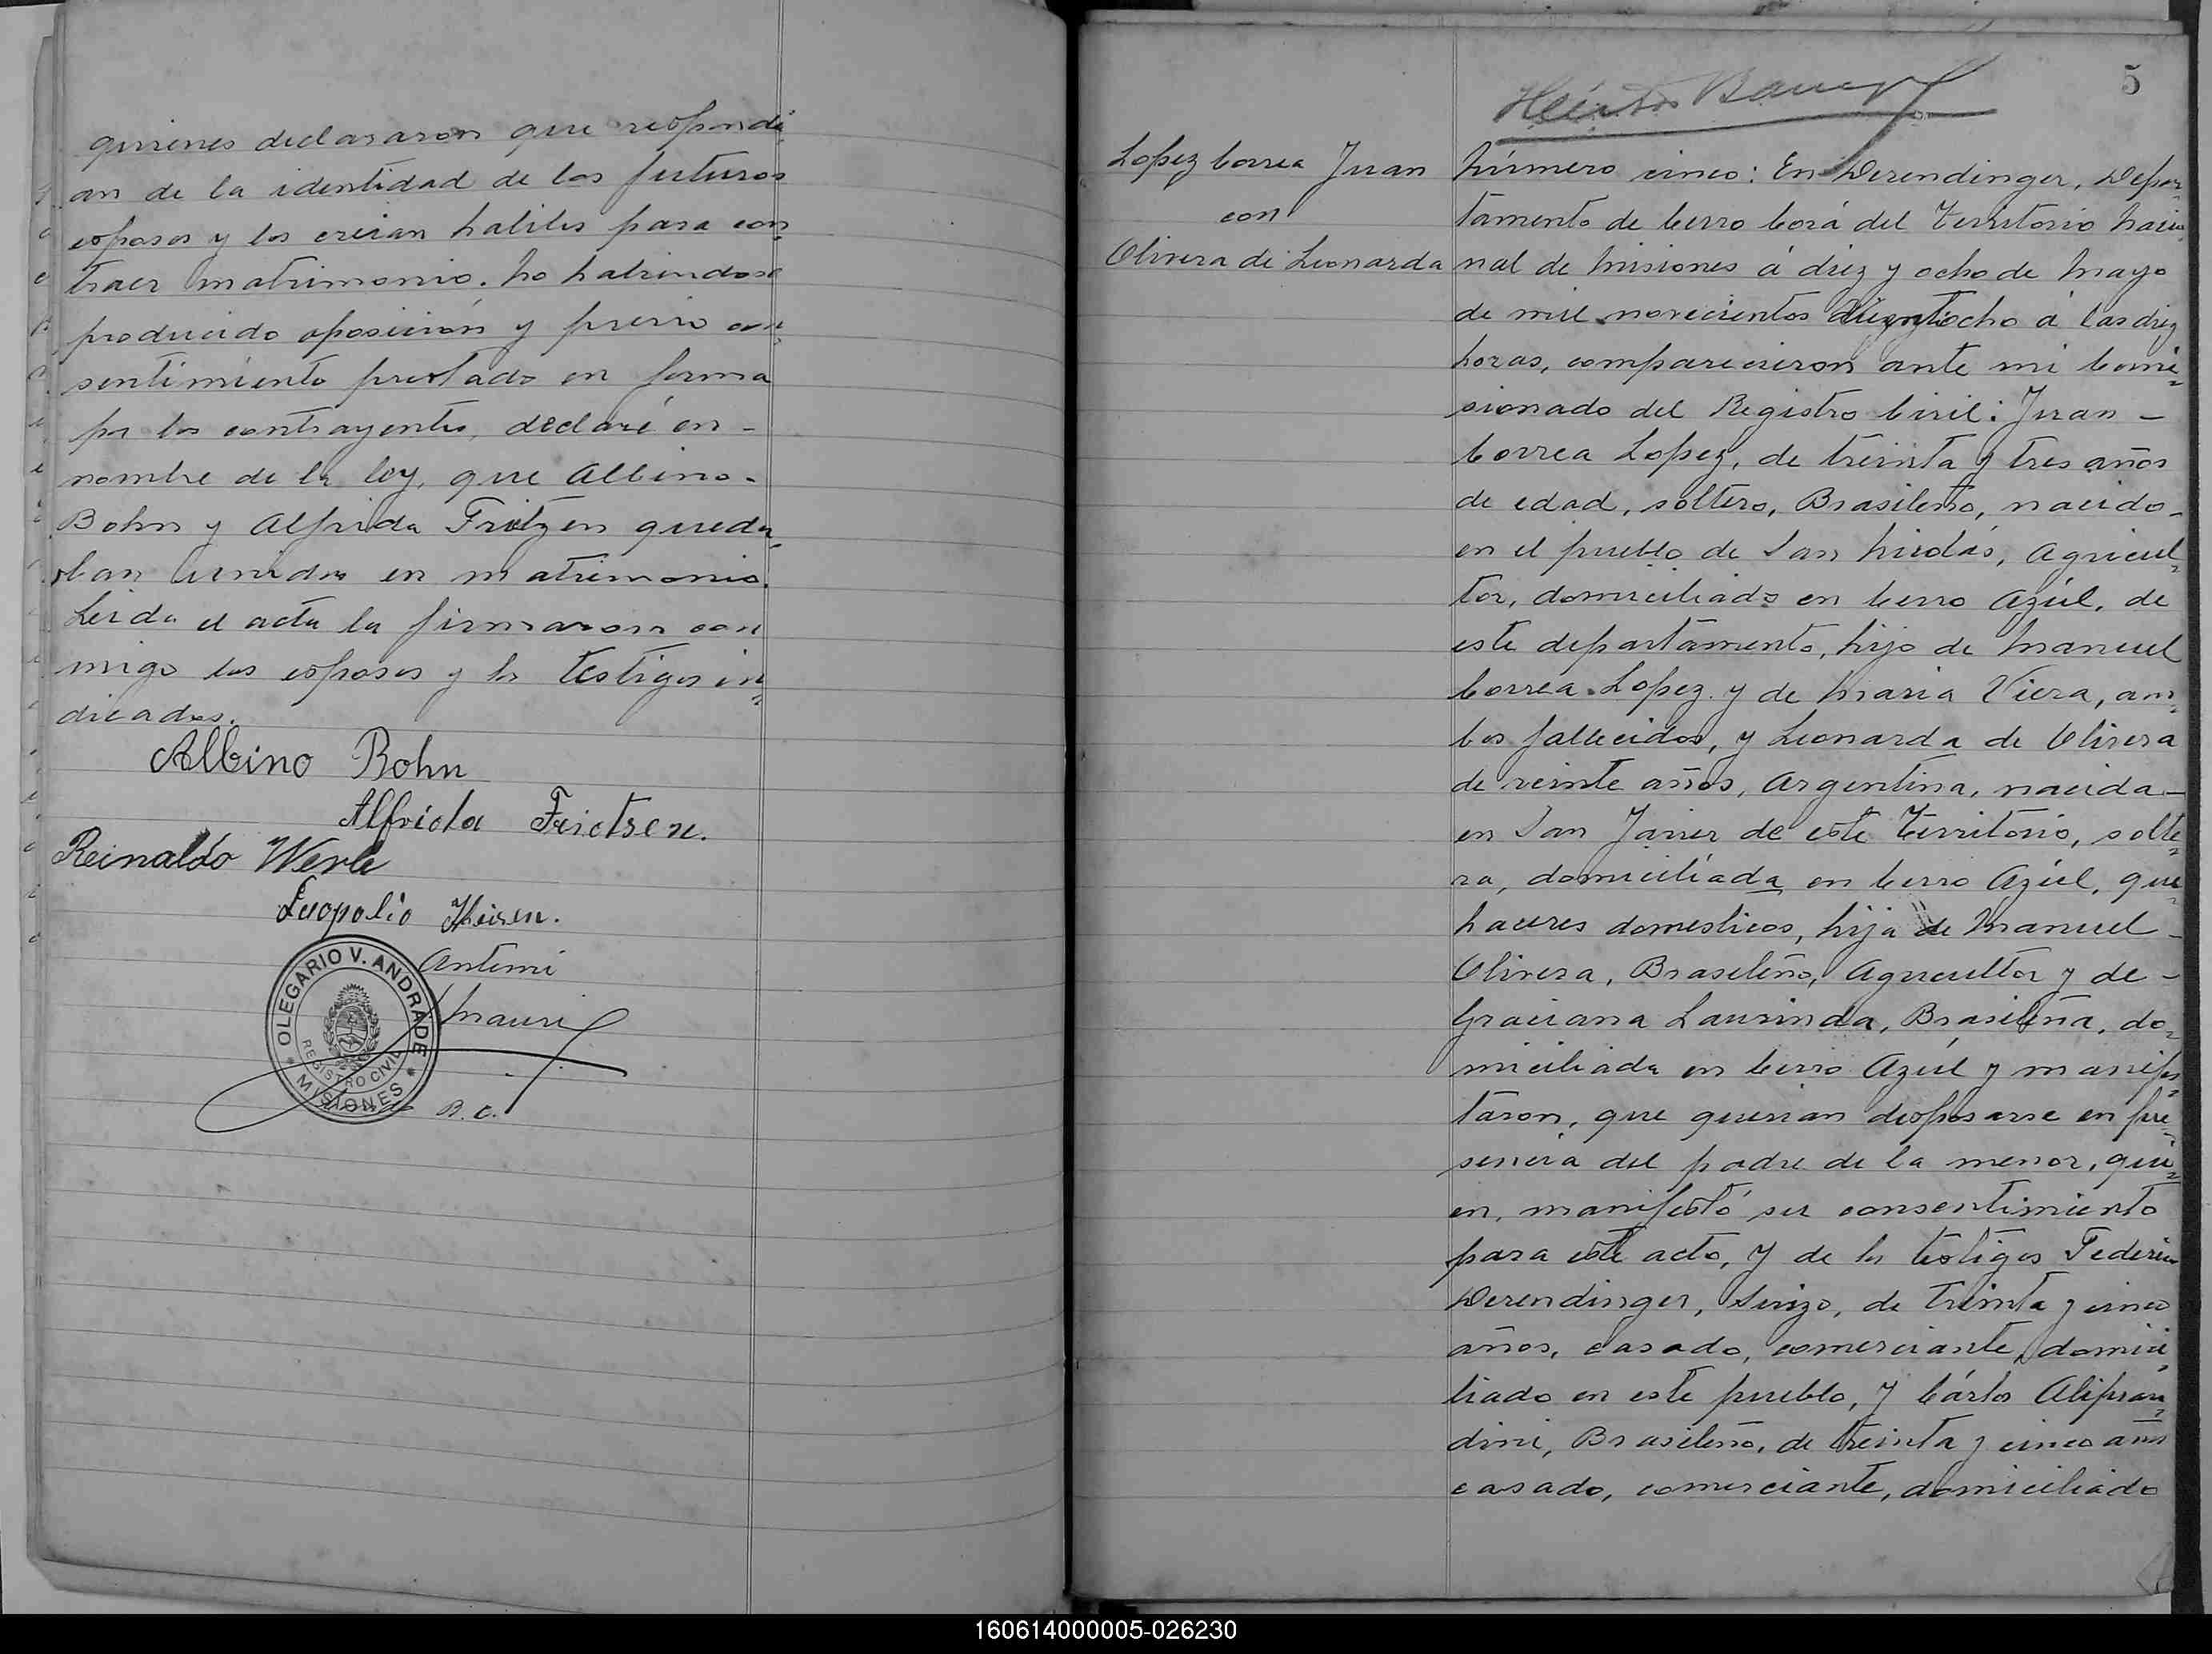 quienes declararon que respondi
an de la identidad de los futuros
esposos y los creian habiles para con
traer matrimonio. No habiendose
producido oposición y previo con
sentimiento prestado en forma
por los contrayentes, declaré en -
nombre de la ley, que Albino -
Bohn y Alfrida Fritzen queda
ban unidos en matrimonio.
Leida el acta la firmaron con
migo los esposos y los testigos in
dicados.
Albino Bohn
Alfrida Frictsen.
Reinaldo Werle
Leopoldo Theisen.
Antemi
OLEGARIO V. ANDRADE
REGISTRO CIVIL
* MISIONES *
R. C.
5
Lopez Correa Juan
con
Olivera de Leonarda
Número cinco: En Derendinger, Depar
tamento de Cerro Corá del Territorio Nacio
nal de Misiones á diez y ocho de Mayo
de mil novecientos á las diez
horas, comparecieron ante mi Comi
sionado del Registro Civil: Juan -
Correa Lopez, de treinta y tres años
de edad, soltero, Brasileño, nacido -
en el pueblo de San Nicolás, Agricul
tor, domiciliado en Cerro Azúl, de
este departamento, hijo de Manuel
Correa Lopez y de Maria Viera, am
bos fallecidos, y Leonarda de Olivera
de veinte años, Argentina, nacida -
en San Javier de este Territorio, solte
ra, domiciliada en Cerro Azúl, que
haceres domesticos, hija de Manuel -
Olivera, Brasileño, Agricultor y de -
Graciana Laurinda, Brasileña, do
miciliada en Cerro Azúl y manifes
taron, que querian desposarse en pre
sencia del padre de la menor, qui
en, manifestó su consentimiento
para este acto, y de los testigos Federico
Derendinger, Suizo, de treinta y cinco
años, casado, comerciante, domici
liado en este pueblo, y Cárlos Alipran
dini, Brasileño, de treinta y cinco años
casado, comerciante, domiciliado
160614000005-026230